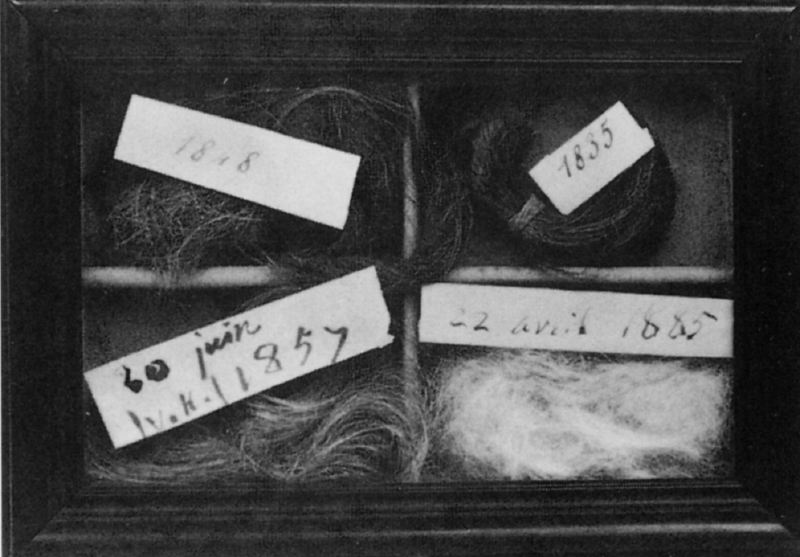 1818
1835
juin
(V.H.) 1857
22 avril 1885